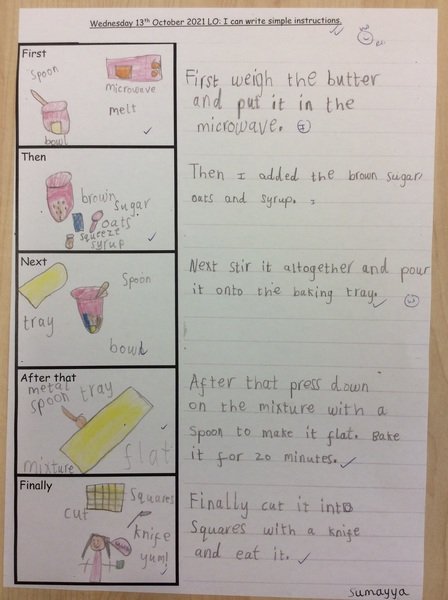 Wednesday 13th October 2021 LO: I can write simple instructions.
First
spoon
microwave
melt
bowl
First weigh the butter
and put it in the
microwave.
Then
brown
sugar
oats
squeeze
syrup
Then I added the brown sugar
oats and syrup.
Next
Spoon
tray
bowl
Next stir it altogether and pour
it onto the baking tray.
After that
metal
spoon
tray
mixture
flat
After that press down
on the mixture with a
spoon to make it flat. Bake
it for 20 minutes.
Finally
squares
cut
knife
yum!
Finally cut it into
squares with a knife
and eat it.
sumayya